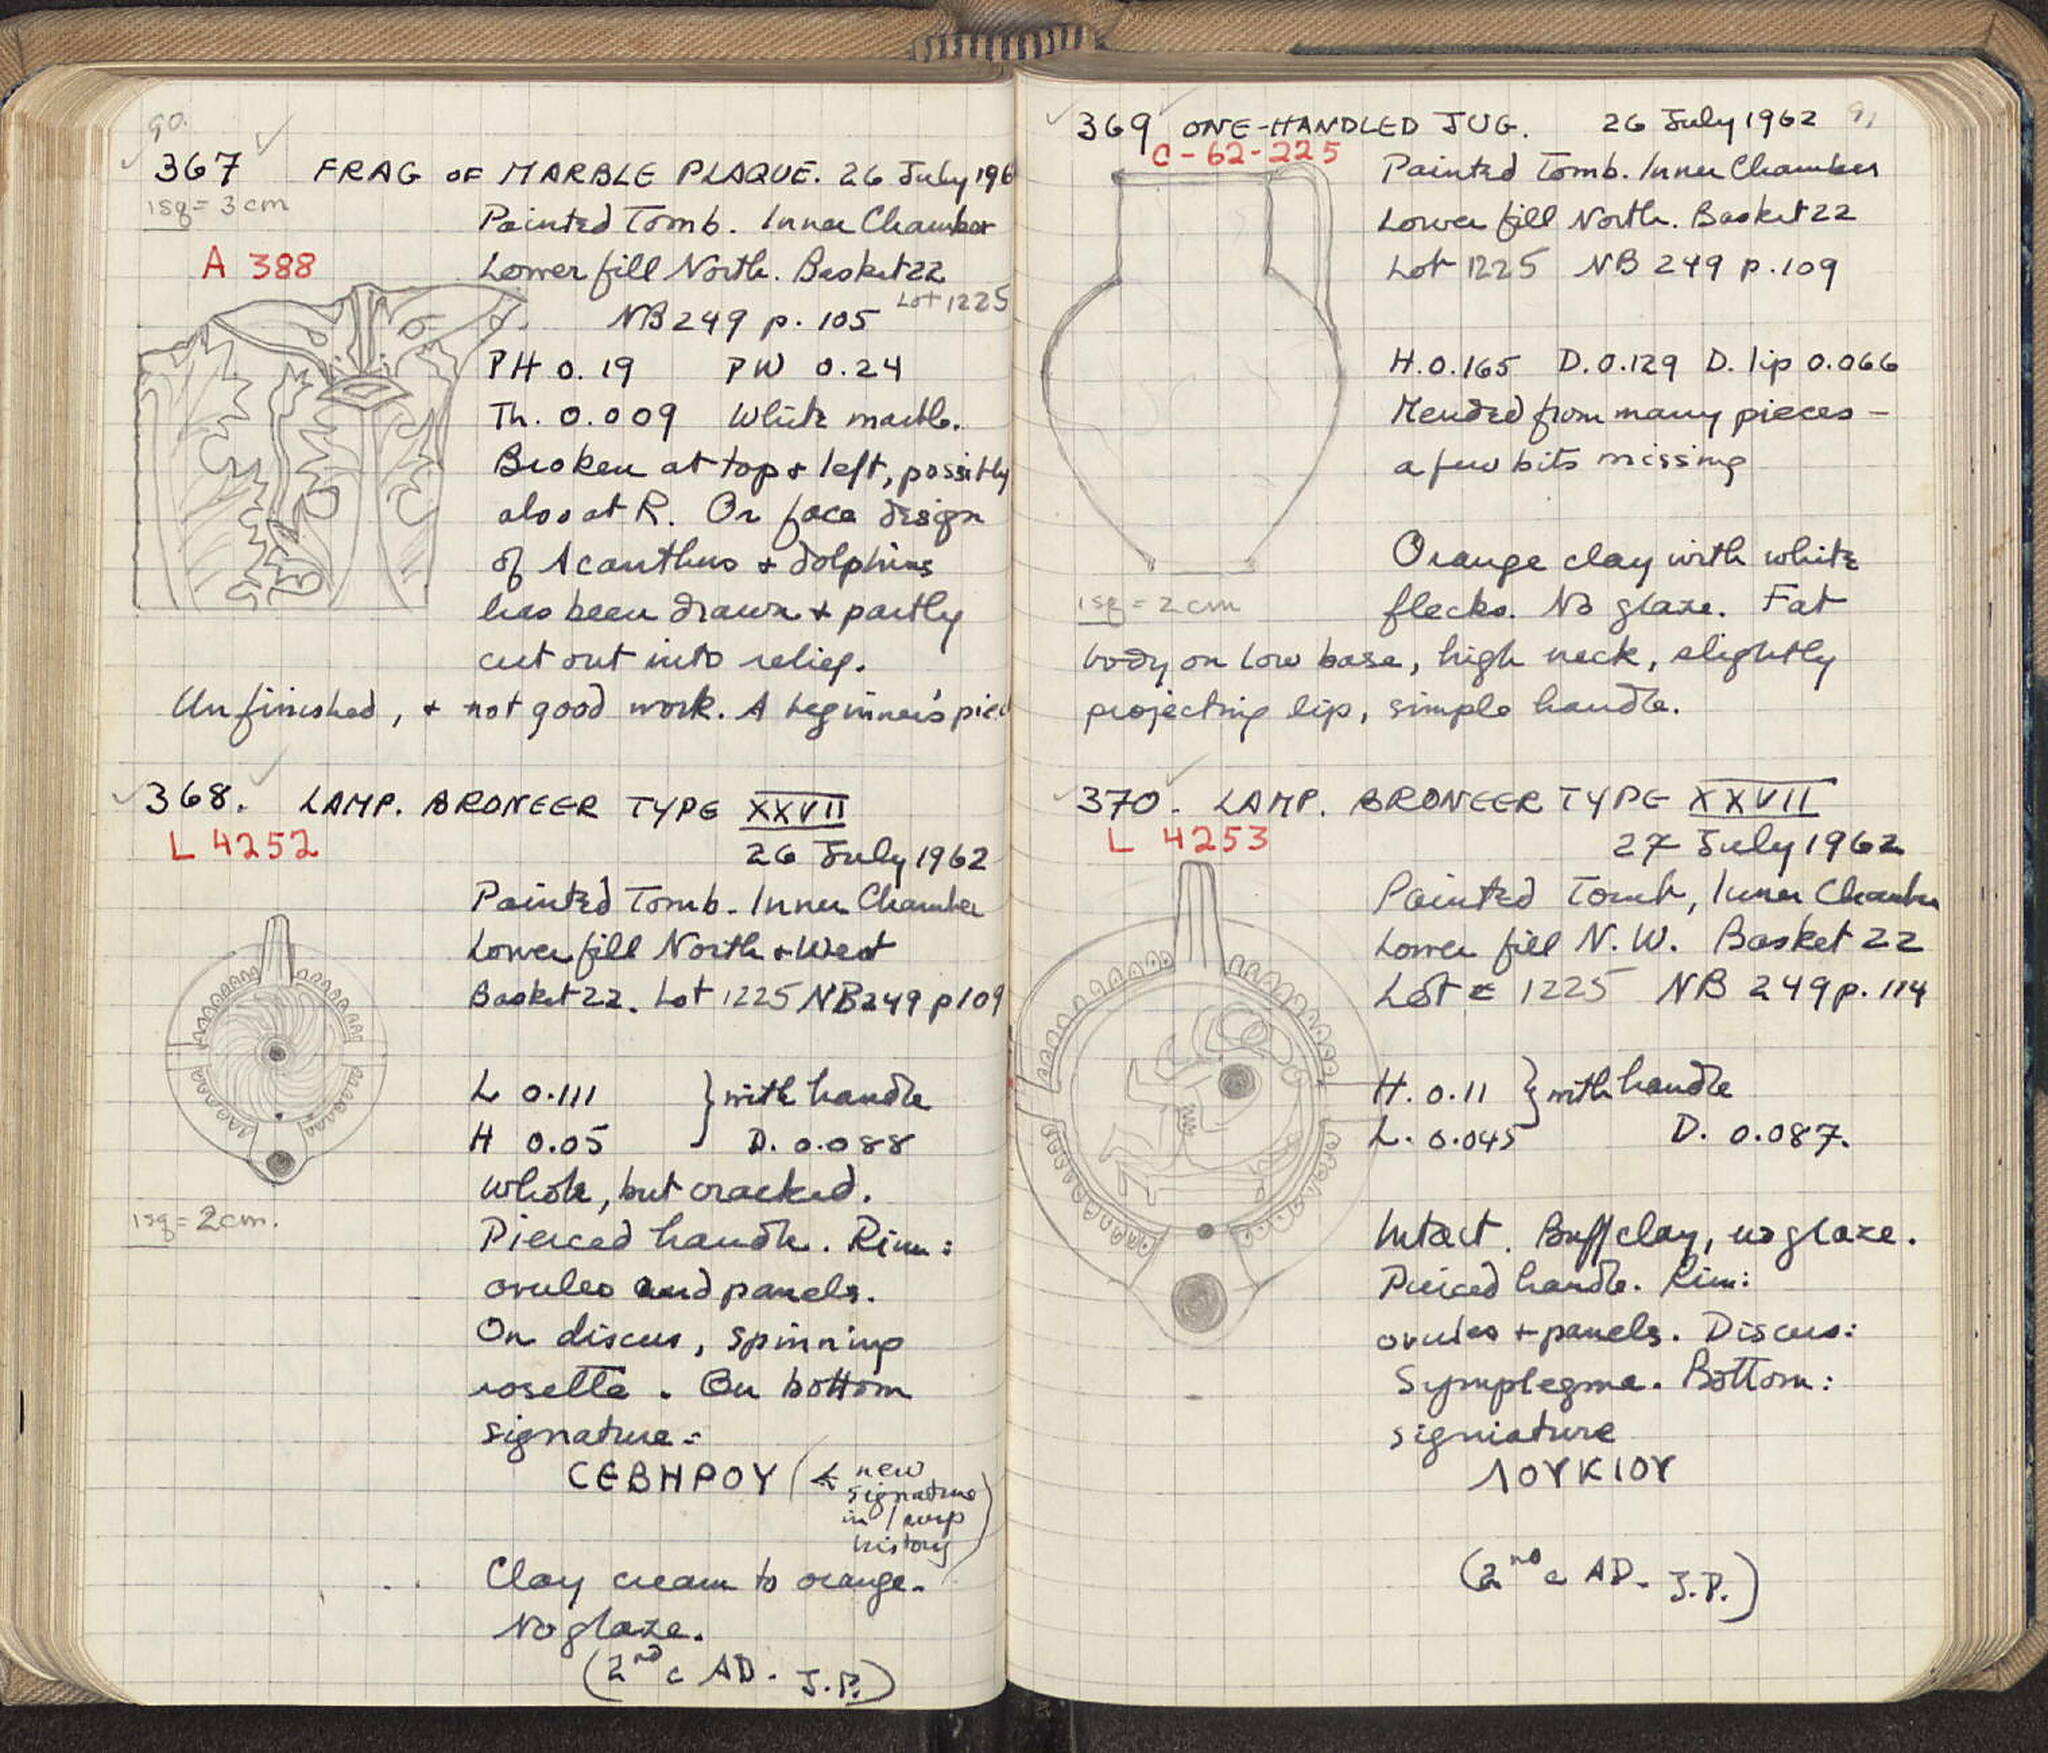 90.
367 FRAG OF MARBLE PLAQUE. 26 July 196
1sq = 3 cm
Painted Tomb. Inner Chamber
A 388
Lower fill North. Basket 22
Lot 1225
NB 249 p. 105
PH 0.19 PW 0.24
Th. 0.009 White marble.
Broken at top & left, possibly
also at R. On face design
of Acanthus & dolphins
has been drawn & partly
cut out into relief.
Unfinished, & not good work. A beginner's piec
368. LAMP. BRONEER TYPE XXVII
L 4252
26 July 1962
Painted Tomb. Inner Chamber
Lower fill North & West
Basket 22. Lot 1225 NB 249 p 109
L 0.111 } with handle
H 0.05 D. 0.088
Whole, but cracked.
1sq = 2cm.
Pierced handle. Rim:
ovules and panels.
On discus, spinning
rosette. On bottom
signature:
CEBHPOY (← new
signature
in lamp
history)
Clay cream to orange.
No glaze.
(2nd c AD. J.P.)
91
369 ONE-HANDLED JUG. 26 July 1962
C-62-225
Painted Tomb. Inner Chamber
Lower fill North. Basket 22
Lot 1225 NB 249 p. 109
H. 0.165 D. 0.129 D. lip 0.066
Mended from many pieces –
a few bits missing
Orange clay with white
1sq = 2 cm
flecks. No glaze. Fat
body on low base, high neck, slightly
projecting lip, simple handle.
370. LAMP. BRONEER TYPE XXVII
L 4253
27 July 1962
Painted Tomb, Inner Chamber
Lower fill N.W. Basket 22
Lot 1225 NB 249 p. 114
H. 0.11 } with handle
L. 0.045 D. 0.087.
Intact. Buff clay, no glaze.
Pierced handle. Rim:
ovules & panels. Discus:
Symplegma. Bottom:
signiature
ΛΟΥΚΙΟΥ
(2nd c AD. J.P.)